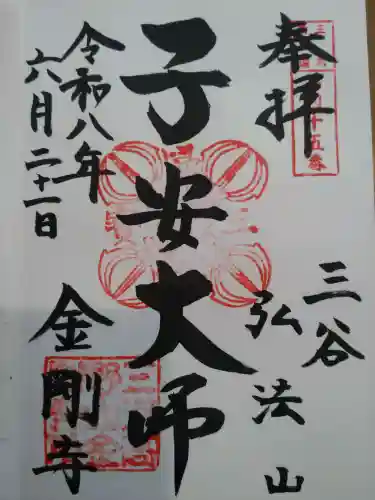 奉拝
三谷
弘法山
子安大师
令和八年
六月二十一日
金剛寺